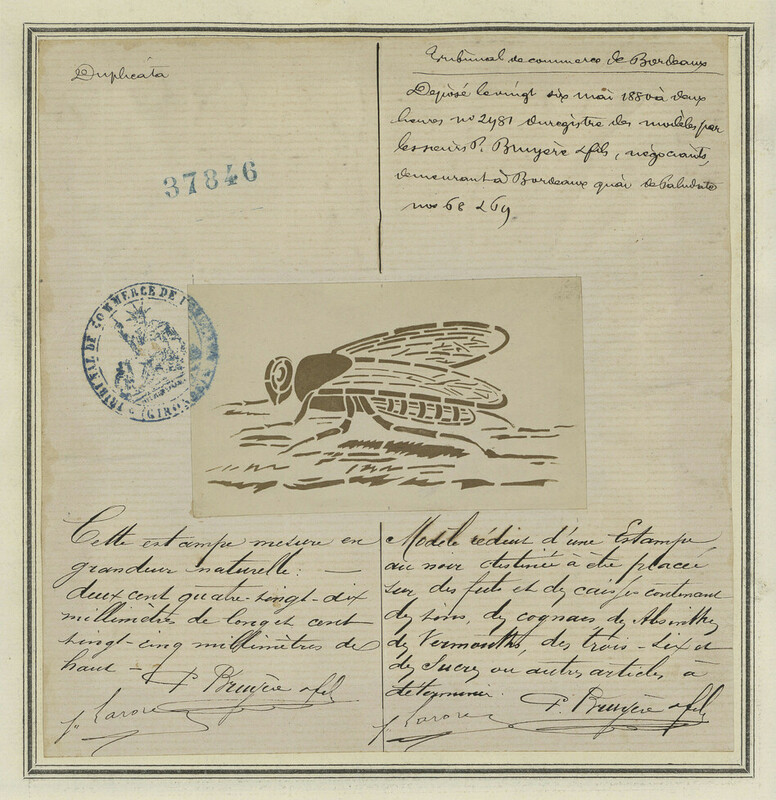 Duplicata
37846
Tribunal de commerce de Bordeaux
Déposé le vingt six mai 1880 à deux
heures no 2481 du registre des modèles par
les sieurs P. Bruyère & fils, négociants,
demeurant à Bordeaux quai de Paludate
nos 68 & 69
TRIBUNAL DE COMMERCE DE
(GIRONDE)
Cette estampe mesure en
grandeur naturelle: —
deux cent quatre-vingt-dix
millimètres de long et cent
vingt-cinq millimètres de
haut —
P. Bruyère & fils
Modèle réduit d'une Estampe
au noir destinée à être placée
sur des futs et des caisses contenant
des vins, des cognacs des Absinthes
des Vermouths, des trois-six et
des Sucres ou autres articles à
déterminer.
P. Bruyère & fils